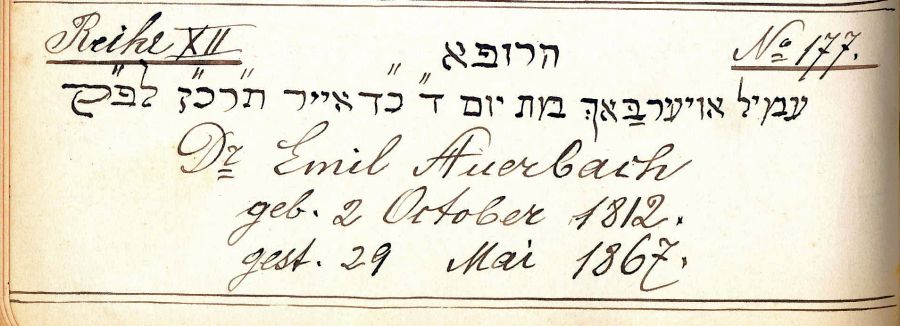 Reihe XII הרופא No 177.
עמיל אויערבאך מת יום ד״ כ״ד אייר תרכ״ז לפ״ק
Dr Emil Auerbach
geb. 2 October 1812.
gest. 29 Mai 1867.